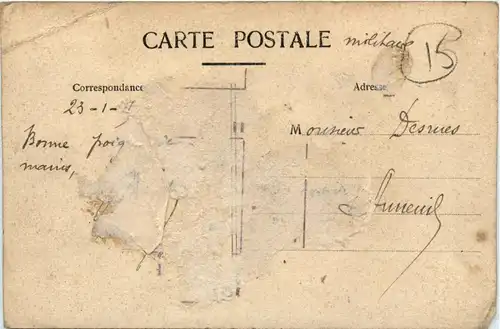 CARTE POSTALE militaire
15
Correspondance
Adresse
23-1-
Monsieur Desrues
Bonne poig de
mains,
Auneuil